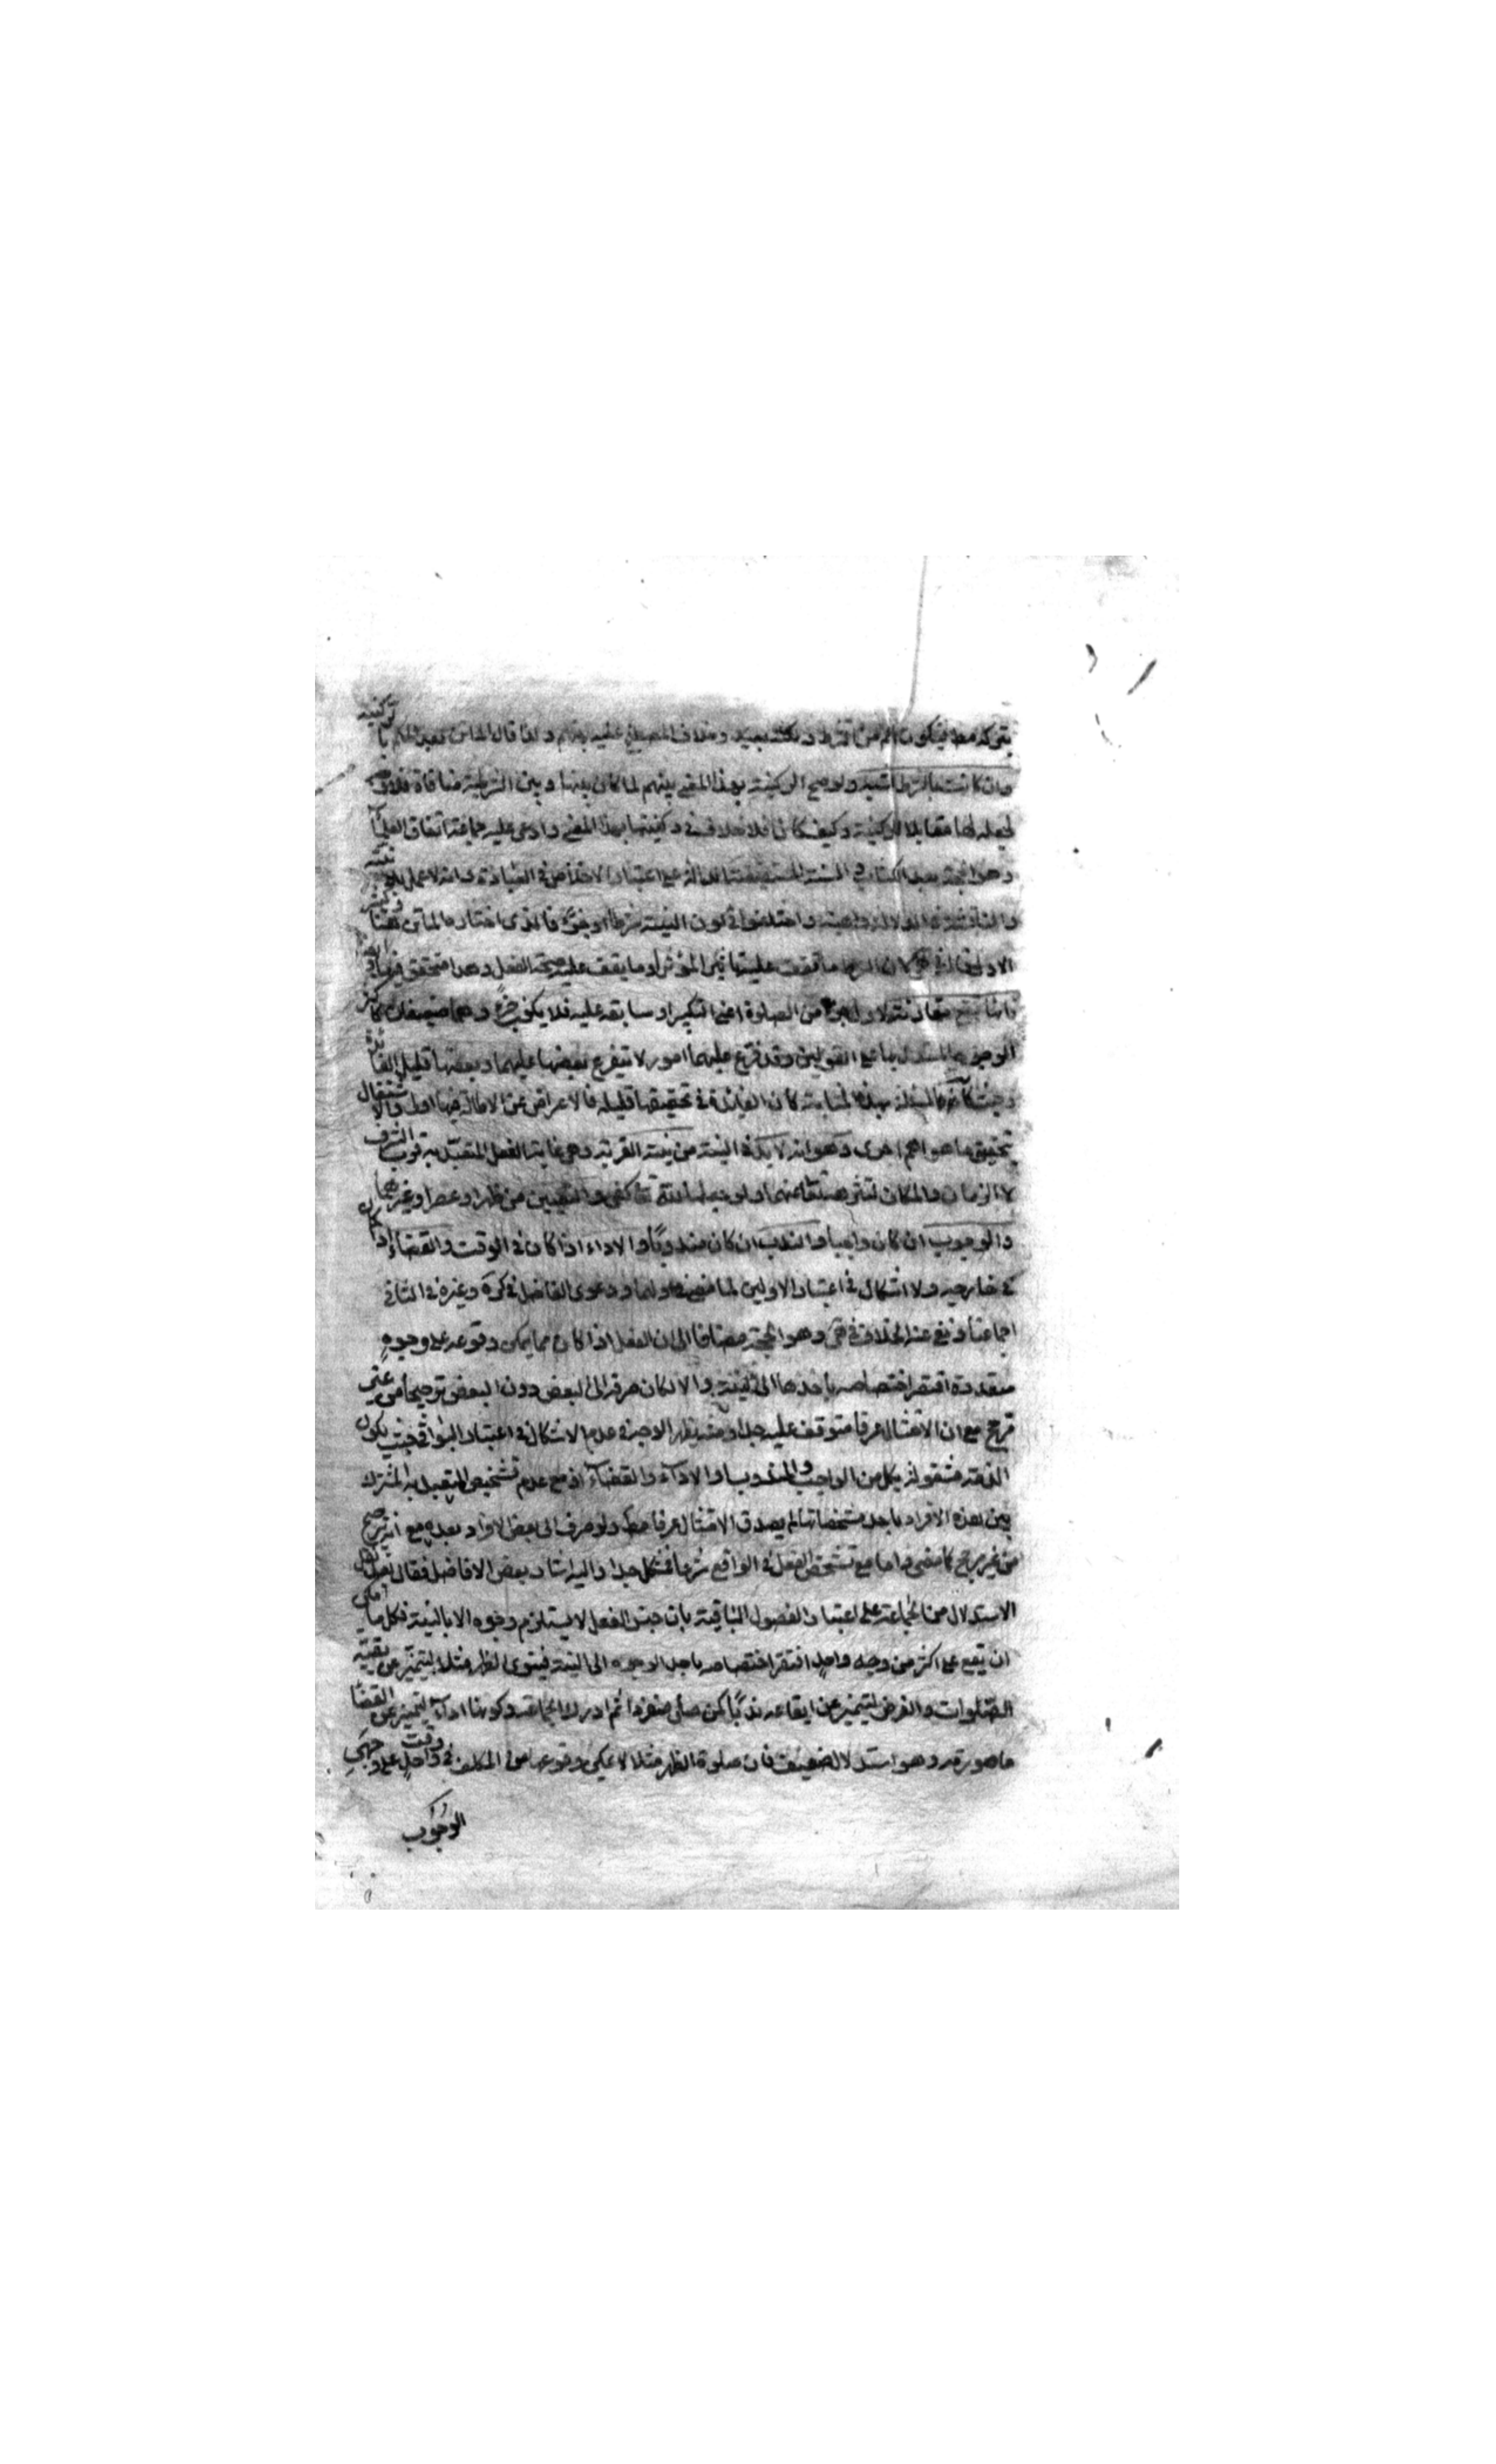 بتركه مطلقا فيكون اعم من الشرط ولكنه بعيد وخلاف المصطلح عليه بينهم ولذا قال الماتن بعد الحكم بالركنية
وان كانت بالشرط اشبه ولو صح الركنية بهذا المعنى بينهم لما كان بينها وبين الشرطية منافاة فلا وجه
لجعله لها مقابلا للركنية وكيف كان فلا خلاف في ركنيتها بهذا المعنى وادعى عليه جماعة اتفاق العلماء
وهو الحجة بعد الكتاب والسنة المستفيضة الدالة على اعتبار الاخلاص في العبادة وانه لا عمل الا بنية
والمناقشة في الدلالة واهية واختلفوا في كون النية شرطا او جزء فالذي اختاره الماتن هنا وكثير
الاول قال في لان الشرط ما تقف عليه تاثير المؤثر او ما يقف عليه صحة الفعل وهذا متحقق في النية
وانها تقع مقارنة لاول جزء من الصلوة اعني التكبير او سابقة عليه فلا يكون جزء وهما ضعيفان كاكثر
الوجوه المستدل بها على القولين وقد فرع عليهما امور لا يتفرع بعضها عليهما وبعضها قليل الفائدة
وحيث كانت المسئلة بهذه المثابة كان الفائدة في تحقيقها قليلة فالاعراض عن الاطالة فيها اولى والاشتغال
بتحقيق ما هو اهم احرى وهو انه لا بد في النية من نية القربة وهي غاية الفعل المتعبد به قرب الشرف
لا الزمان والمكان لتنزهه تعالى عنهما ولو جعلها لله تعالى كفى والتعيين من ظهر او عصر او غيرهما
والوجوب ان كان واجبا والندب ان كان مندوبا والاداء اذا كان في الوقت والقضاء اذا كان
في خارجه ولا اشكال في اعتبار الاولين لما مضى في اولهما ودعوى الفاضل في كره وغيره في الثاني
اجماعنا ونفى عنه الخلاف في هى وهو الحجة مضافا الى ان الفعل اذا كان مما يمكن وقوعه على وجوه
متعددة افتقر اختصاصه باحدها الى النية والا لكان صرفه الى البعض دون البعض ترجيحا من غير
مرجح مع ان الامتثال عرفا متوقف عليه جدا ومنه يظهر الوجه في عدم الاشكال في اعتبار البواقي حيث يكون
الذمة مشغولة بكل من الواجب والمندوب او الاداء والقضاء اذ مع عدم تشخيص المتعبد به المشترك
بين هذه الافراد باحد مشخصاتها لم يصدق الامتثال عرفا مط ولو صرف الى بعض الافراد بعده مع انه ترجيح
من غير مرجح كما مضى واما مع تشخص الفعل في الواقع شرعا فمشكل جدا واليه اشار بعض الافاضل فقال بعد نقل
الاستدلال من الجماعة على اعتبار الفصول الباقية بان جنس الفعل لا يستلزم وجوهه الا بالنية فكل ما امكن
ان يقع على اكثر من وجه واحد افتقر اختصاصه باحد الوجوه الى النية فينوي الظهر مثلا ليتميز عن بقية
الصلوات والفرض ليتميز عن ايقاعه ندبا كمن صلى منفردا ثم ادرك الجماعة وكونها اداء ليتميز عن القضاء
ما صورته وهو استدلال ضعيف فان صلوة الظهر مثلا لا يمكن وقوعها من المكلف في وقت واحد على وجهي
الوجوب